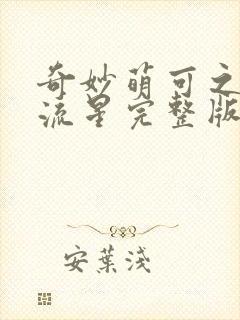 奇妙萌可之
流星完整版
安葉淺